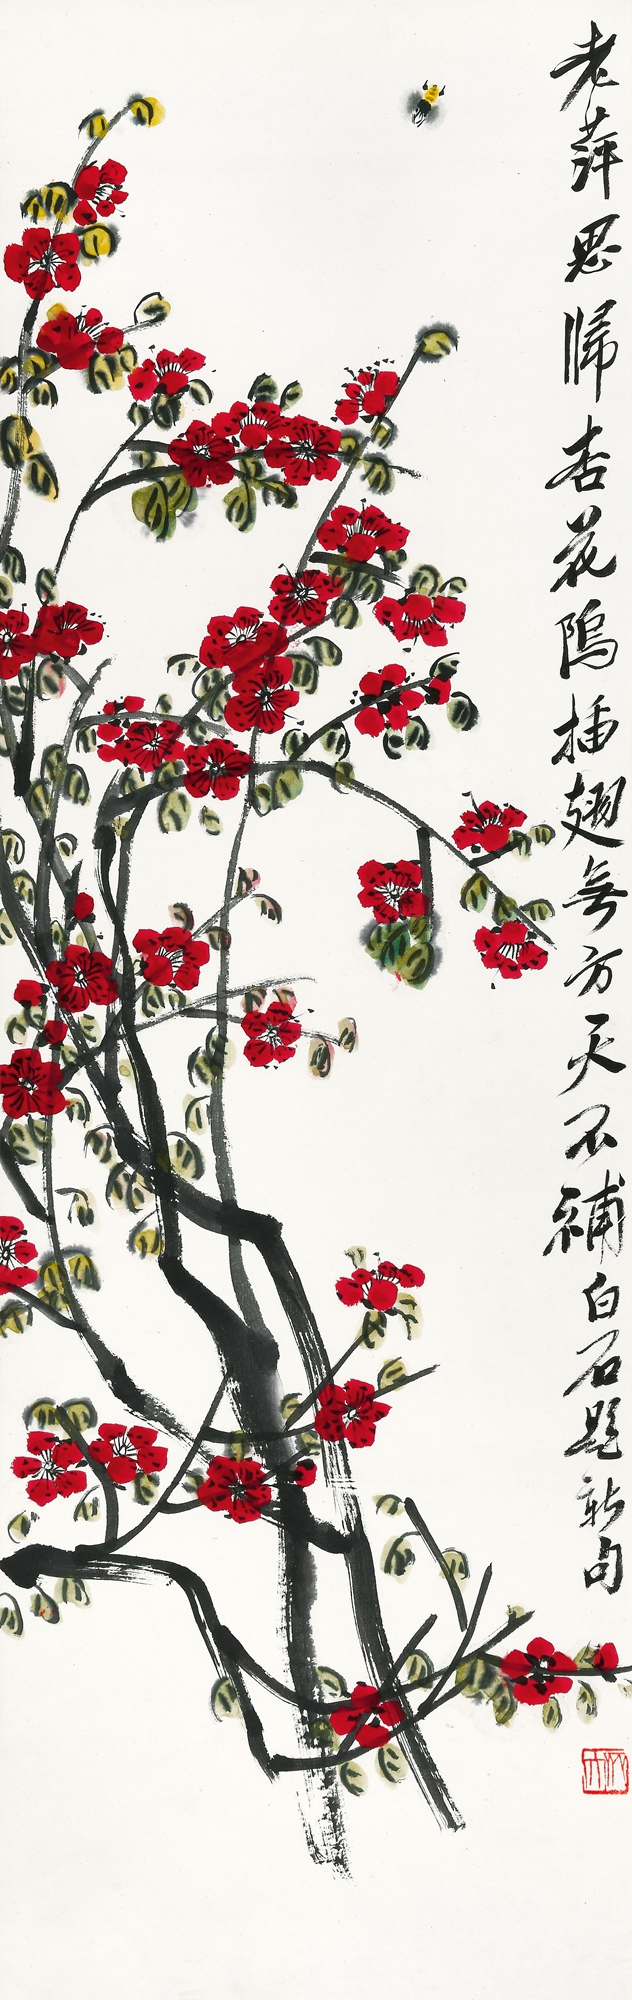 老萍思歸杏花隖插翅無方天不補白石題新句
木人